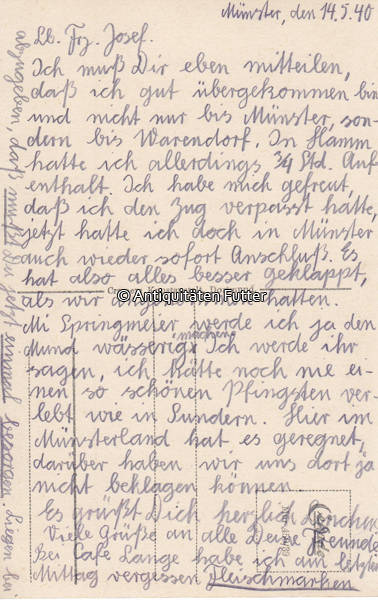 Münster, den 14.5.40
Lb. Frz. Josef.
Ich muß Dir eben mitteilen,
daß ich gut übergekommen bin
und nicht nur bis Münster, son-
dern bis Warendorf. In Hamm
hatte ich allerdings 3/4 Std. Auf
enthalt. Ich habe mich gefreut,
daß ich den Zug verpasst hatte,
jetzt hatte ich doch in Münster
auch wieder sofort Anschluß. Es
hat also alles besser geklappt,
© Antiquitäten Futter
als wir hatten.
Mi Springmeier werde ich ja den
Mund wässerig machen. Ich werde ihr
sagen, ich hätte noch nie ei-
nen so schönen Pfingsten ver-
lebt wie in Sundern. Hier im
Münsterland hat es geregnet,
darüber haben wir uns dort ja
nicht beklagen können.
Es grüßt Dich herzlich Lenchen
Viele Grüße an alle Deine Freunde
Bei Café Lange habe ich am letzten
Mittag vergessen Fleischmarken
abzugeben, das mußt Du jetzt einmal besorgen. Liegen bei